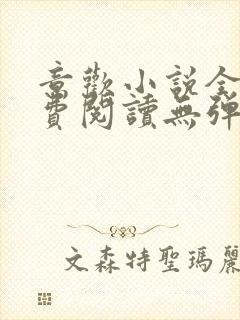 章歡小说全
費閱讀無彈
文森特聖瑪麗